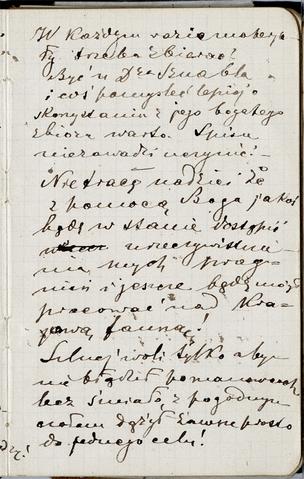 W każdym razie materya-
ły trzeba zbierać
Być u Dra Sznabla
i coś pomyśleć lepiej o
skorzystaniu z jego bogatego
zbioru warto. Spisu
niezawadzi uczynić. –
Nie tracę nadziei że
z pomocą Boga jakoś
będę w stanie dostąpić
urzeczywistnie-
nia mych prag-
nień i jeszcze będę mógł
pracować nad Kra-
jową fauną!
Silnej woli tylko abym
nie błądził po manowcach
lecz śmiało z pogodnym
czołem dążył zawsze prosto
do jednego celu!